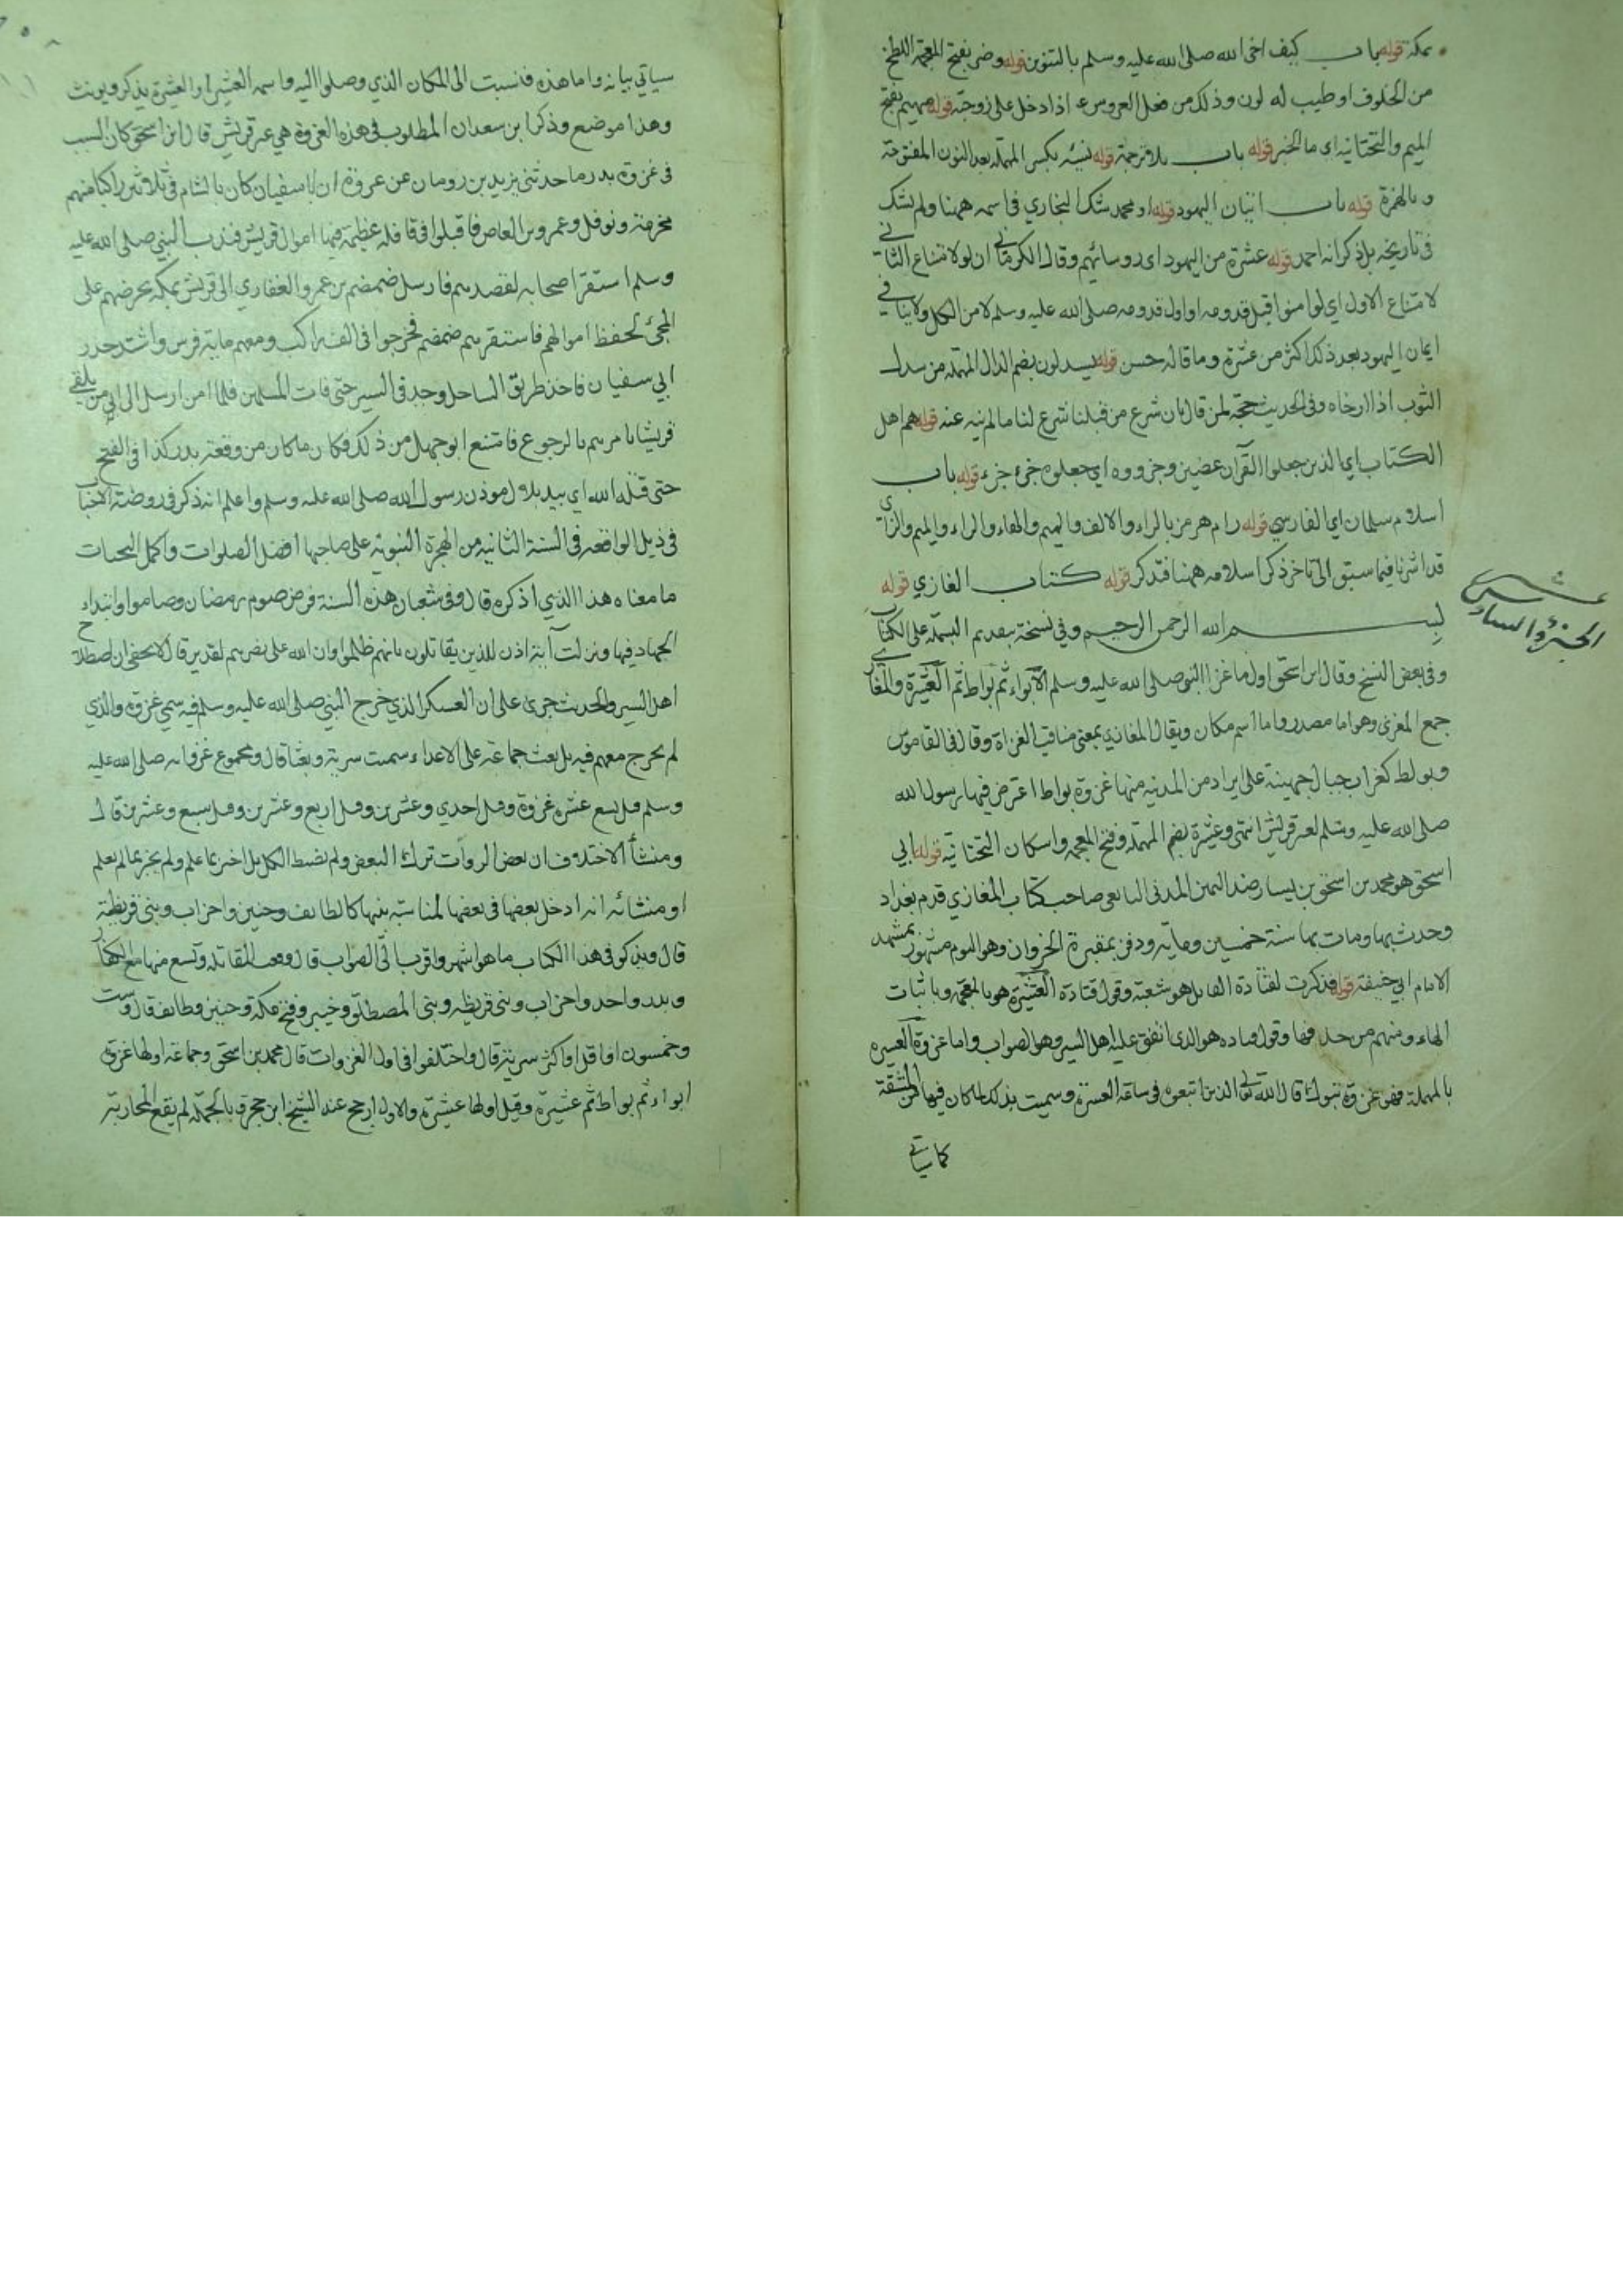 بمكة قوله باب كيف اخى الله صلى الله عليه وسلم بالتنوين قوله وضر بفتح المعجمة اللطخ
من الخلوف او طيب له لون وذلك من فعل العروس اذا دخل على زوجته قوله مهيم بفتح
الميم والتحتانية اى ما الخبر قوله باب بلا ترجمة قوله نسئه بكسر المهملة بعد النون المفتوحة
وبالهمزة قوله باب اتيان اليهود قوله او محمد شك البخاري في اسمه ههنا ولم يشك
في تاريخه بل ذكر انه احمد قوله عشرة من اليهود اى روسائهم وقال الكرماني ان لو لامتناع الثاني
لامتناع الاول اي لو امنوا قبل قدومه او اول قدومه صلى الله عليه وسلم لامن الكل ولا ينافي
ايمان اليهود بعد ذلك اكثر من عشرة وما قاله حسن قوله يسدلون بضم الدال المهملة من سدل
الثوب اذا ارخاه وفي الحديث حجة لمن قال بان شرع من قبلنا شرع لنا ما لم ينه عنه قوله هم اهل
الكتاب اي الذين جعلوا القرآن عضين وجزءوه اي جعلوه جزء جزء قوله باب
اسلام سلمان اي الفارسي قوله رام هرمز بالراء والالف والميم والهاء والراء والميم والزاي
قد اشرنا فيما سبق الى تاخر ذكر اسلامه ههنا فتذكر قوله كتاب المغازي قوله
بسم الله الرحمن الرحيم وفي نسخة بتقديم البسملة على الكتاب
الجزؤ السادس عشر
وفي بعض النسخ وقال ابن اسحق اول ما غزا النبي صلى الله عليه وسلم الابواء ثم بواط ثم العشيرة والمغازي
جمع المغزى وهو اما مصدر واما اسم مكان ويقال المغازي بمعنى مناقب الغزاة وقال في القاموس
وبواط كغراب جبال جهينة على ابراد من المدينة منها غزوة بواط اعترض فيها رسول الله
صلى الله عليه وسلم لعير قريش انتهى وعشيرة بضم المهملة وفتح المعجمة واسكان التحتانية قوله ابي
اسحق هو محمد بن اسحق بن يسار ضد اليمن المدني التابعي صاحب كتاب المغازي قدم بغداد
وحدث بها ومات بها سنة خمسين ومائة ودفن بمقبرة الخيزران وهو اليوم مشهور بمشهد
الامام ابي حنيفة قوله فذكرت لقتادة القائل هو شعبة وقول قتادة العشيرة هو بالمعجمة وباثبات
الهاء ومنهم من حذفها وقول قتادة هو الذى اتفق عليه اهل السير وهو الصواب واما غزوة العسيرة
بالمهملة فهى غزوة تبوك قال الله تعالى الذين اتبعوه في ساعة العسرة وسميت بذلك لما كان فيها من المشقة
كما سياتي
سياتي بيانه واما هذه فنسبت الى المكان الذي وصلوا اليه واسمه العشير او العشيرة يذكر ويونث
وهذا موضع وذكر ابن سعد ان المطلوب في هذه الغزوة هي عير قريش قال ابن اسحق كان السبب
في غزوة بدر ما حدثني يزيد بن رومان عن عروة ان ابا سفيان كان بالشام في ثلاثين راكبا منهم
مخرمة ونوفل وعمرو بن العاص فاقبلوا في قافلة عظيمة فيها اموال قريش فندب النبي صلى الله عليه
وسلم استنفر اصحابه لقصدهم فارسل ضمضم بن عمرو الغفاري الى قريش بمكة يحرضهم على
المجئ لحفظ اموالهم فاستنفرهم ضمضم فخرجوا في الف راكب ومعهم مائة فرس واشتد حذر
ابي سفيان فاخذ طريق الساحل وجد في السير حتى فات المسلمين فلما امن ارسل الى من يلقى
قريشا يامرهم بالرجوع فامتنع ابو جهل من ذلك فكان ما كان من وقعة بدر كذا في الفتح
حتى قتله الله اي بيد بلال موذن رسول الله صلى الله عليه وسلم واعلم انه ذكر في روضة الاحباب
في ذيل الواقعة في السنة الثانية من الهجرة النبوية على صاحبها افضل الصلوات واكمل التحيات
ما معناه هذا الذي اذكره قال وفي شعبان هذه السنة فرض صوم رمضان وصاموا وابتداء
الجهاد فيها ونزلت آية اذن للذين يقاتلون بانهم ظلموا وان الله على نصرهم لقدير قال لا يخفى ان اصطلاح
اهل السير والحديث جرى على ان العسكر الذي خرج النبي صلى الله عليه وسلم فيه سمي غزوة والذي
لم يخرج معهم فيه بل بعث جماعة على الاعداء سميت سرية وبعثا قال ومجموع غزواته صلى الله عليه
وسلم قيل تسع عشرة غزوة وقيل احدي وعشرين وقيل اربع وعشرين وقيل سبع وعشرين قال
ومنشأ الاختلاف ان بعض الروات ترك البعض ولم يضبط الكل بل اخبر بما علم ولم يخبر بما لم يعلم
او منشائه انه ادخل بعضها في بعضها لمناسبة بينها كالطايف وحنين واحزاب وبني قريظة
قال ويذكر في هذا الكتاب ما هو اشهر واقرب الى الصواب قال وقعت المقاتلة وتسع منها مع الكفار
وبدر واحد واحزاب وبني قريظه وبني المصطلق وخيبر وفتح مكة وحنين وطايف قال وست
وخمسون او اقل او اكثر سرية قال واختلفوا في اول الغزوات قال محمد بن اسحق وجماعة اولها غزوة
ابواء ثم بواط ثم عشيرة وقيل اولها عشيرة والاول ارجح عند الشيخ ابن حجر وبالجملة لم يقع المحاربة